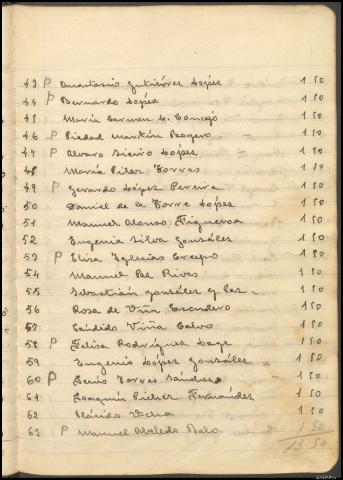 43 P Anastasio Gutiérrez López 1 50
44 P Bernardo López 1 50
45 María Carmen L. Concejo 1 50
46 P Piedad Martín 1 50
47 P Alvaro Sieiro López = 1 50
48 María Pilar Torres 1 50
49 P Gerardo López Pereira 1 50
50 Daniel de la Torre López 1 50
51 Manuel Alonso Figueroa 1 50
52 Eugenia Silva González 1 50
53 P Elisa Iglesias Crespo 1 50
54 Manuel Paz Rivas 1 50
55 Sebastián González y Paz 1 50
56 Rosa de Viña Escudero 1 50
57 Cándido Viña Calvo 1 50
58 P Felisa Rodríguez Lage 1 50
59 Eugenio López González 1 50
60 P Luis Torres Sánchez 1 50
61 Joaquín Fernández 1 50
62 Plácido 1 50
63 P Manuel 1 50